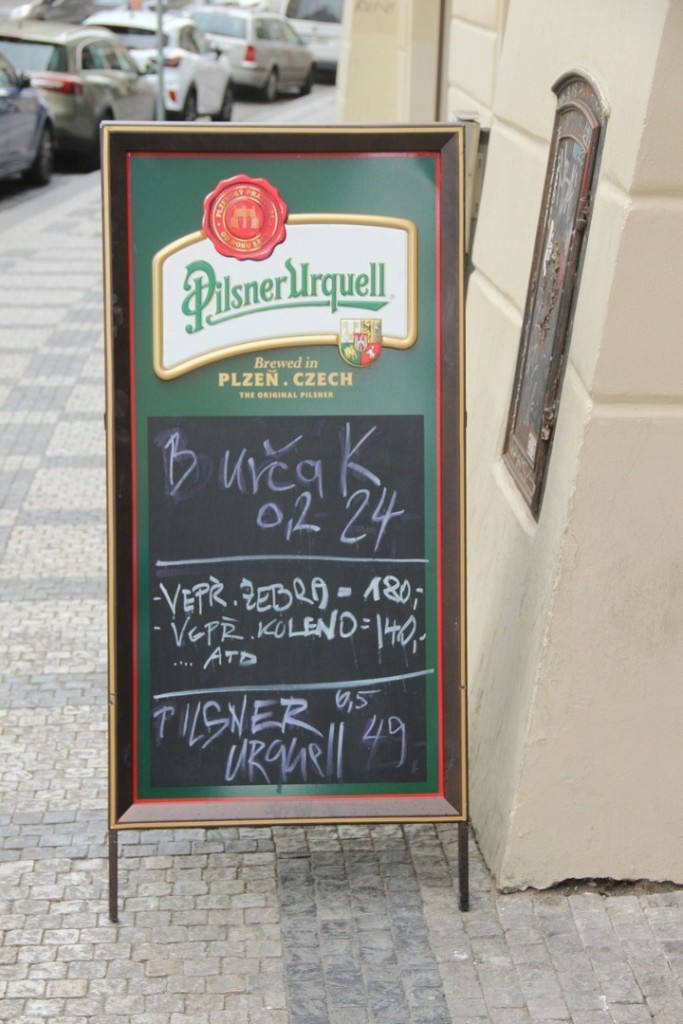 Pilsner Urquell
Brewed in
PLZEŇ . CZECH
THE ORIGINAL PILSNER
Burčak
0,2 24
- VEPŘ. ŽEBRA = 180,-
- VEPŘ. KOLENO = 140,-
.... ATD
PILSNER 0,5
URQUELL 49